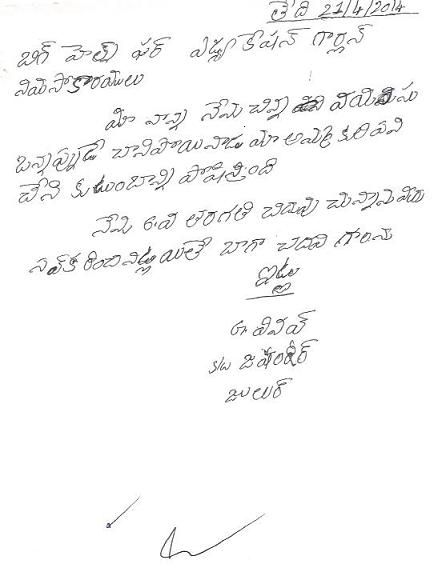 తేది 21/4/2014
బిగ్ హెల్ప్ ఫర్ ఎడ్యుకేషన్ గార్లన్
నమసాకారాయలు
మా నాన్న నేను చిన్న వయిసు
ఉన్నప్పుడే చానిపోయినాడు మా అమ్మ కూలి పని
చేసి కుటుంబాన్ని పోషిస్తుంది
నేను వ తరగతి చదువు చున్నాను
సహకరించినట్లయితే బాగా చదవ గలను
ఇట్లు
S/o
జులుర్